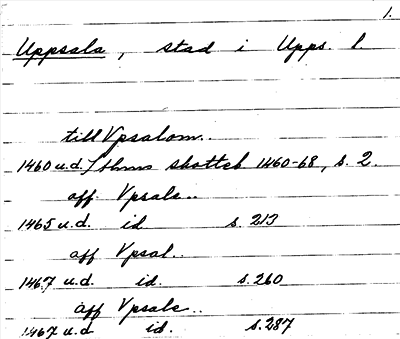 1.
Uppsala, stad i Upps. l
till Vpsalom..
1460 u.d. Sthms skotteb 1460-68, s. 2.
aff Vpsale..
1465 u.d. id s. 213
aff Vpsal..
1467 u.d. id. s. 260
aff Vpsale..
1467 u.d id. s. 287